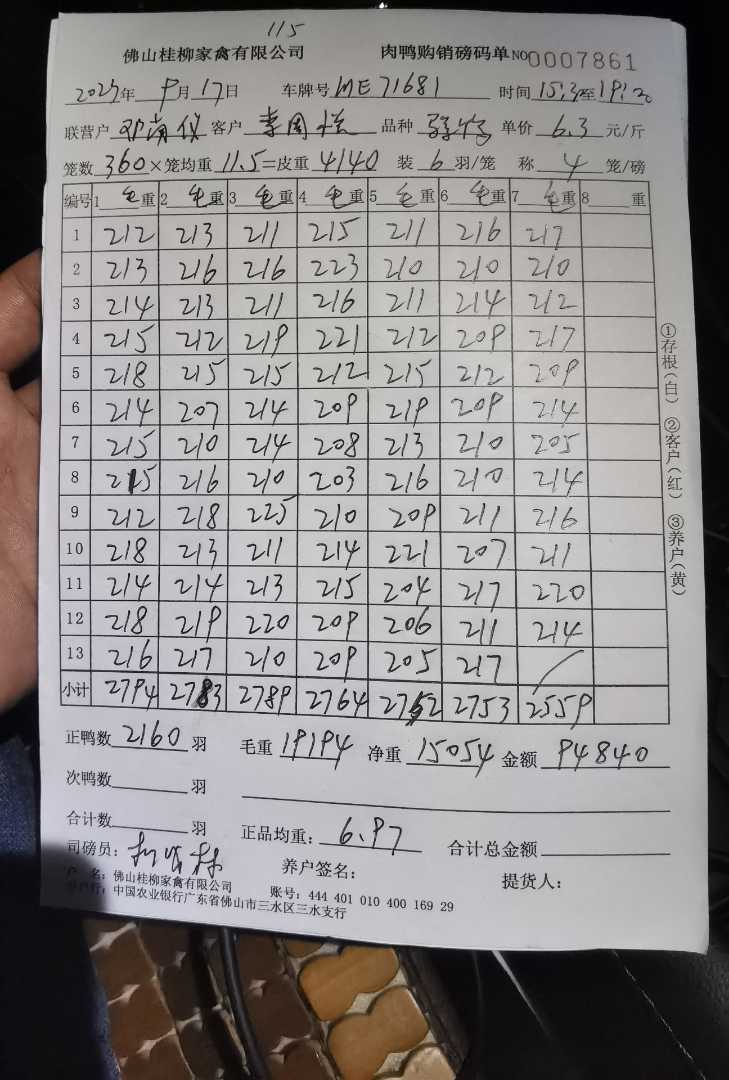 115
佛山桂柳家禽有限公司 肉鸭购销磅码单 NO 0007861
2025年 9月 17日 车牌号 ME71681 时间 15:3 至 19:20
联营户 客户 李国 品种 单价 6.3 元/斤
笼数 360 × 笼均重 11.5 = 皮重 4140 装 6 羽/笼 称 4 笼/磅
编号 1 毛重 2 毛重 3 毛重 4 毛重 5 毛重 6 毛重 7 毛重 8 重
1 212 213 211 215 211 216 217
2 213 216 216 223 210 210 210
3 214 213 211 216 211 214 212
4 215 212 219 221 212 209 217
5 218 215 215 212 215 212 209
6 214 207 214 209 219 209 214
7 215 210 214 208 213 210 205
8 215 216 210 203 216 210 214
9 212 218 225 210 209 211 216
10 218 213 211 214 221 207 211
11 214 214 213 215 204 217 220
12 218 219 220 209 206 211 214
13 216 217 210 209 205 217 /
小计 2794 2783 2789 2764 2752 2753 2559
正鸭数 2160 羽 毛重 19194 净重 15054 金额 94840
次鸭数 羽
合计数 羽 正品均重: 6.97 合计总金额
司磅员: 养户签名: 提货人:
户 名: 佛山桂柳家禽有限公司 账号: 444 401 010 400 169 29
开户行: 中国农业银行广东省佛山市三水区三水支行
①存根(白) ②客户(红) ③养户(黄)